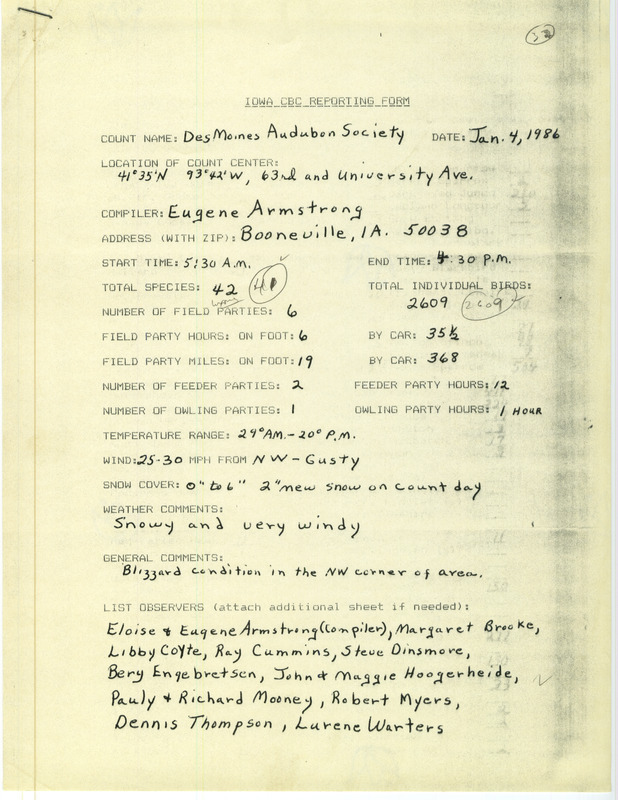 38
IOWA CBC REPORTING FORM
COUNT NAME: Des Moines Audubon Society DATE: Jan. 4, 1986
LOCATION OF COUNT CENTER:
41°35'N 93°42'W, 63rd and University Ave.
COMPILER: Eugene Armstrong
ADDRESS (WITH ZIP): Booneville, IA. 50038
START TIME: 5:30 A.M. END TIME: 4:30 P.M.
TOTAL SPECIES: 42 41 TOTAL INDIVIDUAL BIRDS:
2609 2609
NUMBER OF FIELD PARTIES: 6
FIELD PARTY HOURS: ON FOOT: 6 BY CAR: 35½
FIELD PARTY MILES: ON FOOT: 19 BY CAR: 368
NUMBER OF FEEDER PARTIES: 2 FEEDER PARTY HOURS: 12
NUMBER OF OWLING PARTIES: 1 OWLING PARTY HOURS: 1 HOUR
TEMPERATURE RANGE: 29° AM. - 20° P.M.
WIND: 25-30 MPH FROM NW - Gusty
SNOW COVER: 0" to 6" 2" new snow on count day
WEATHER COMMENTS:
Snowy and very windy
GENERAL COMMENTS:
Blizzard condition in the NW corner of area.
LIST OBSERVERS (attach additional sheet if needed):
Eloise & Eugene Armstrong (Compiler), Margaret Brooke,
Libby Coyte, Ray Cummins, Steve Dinsmore,
Bery Engebretsen, John & Maggie Hoogerheide,
Pauly & Richard Mooney, Robert Myers,
Dennis Thompson, Lurene Warters